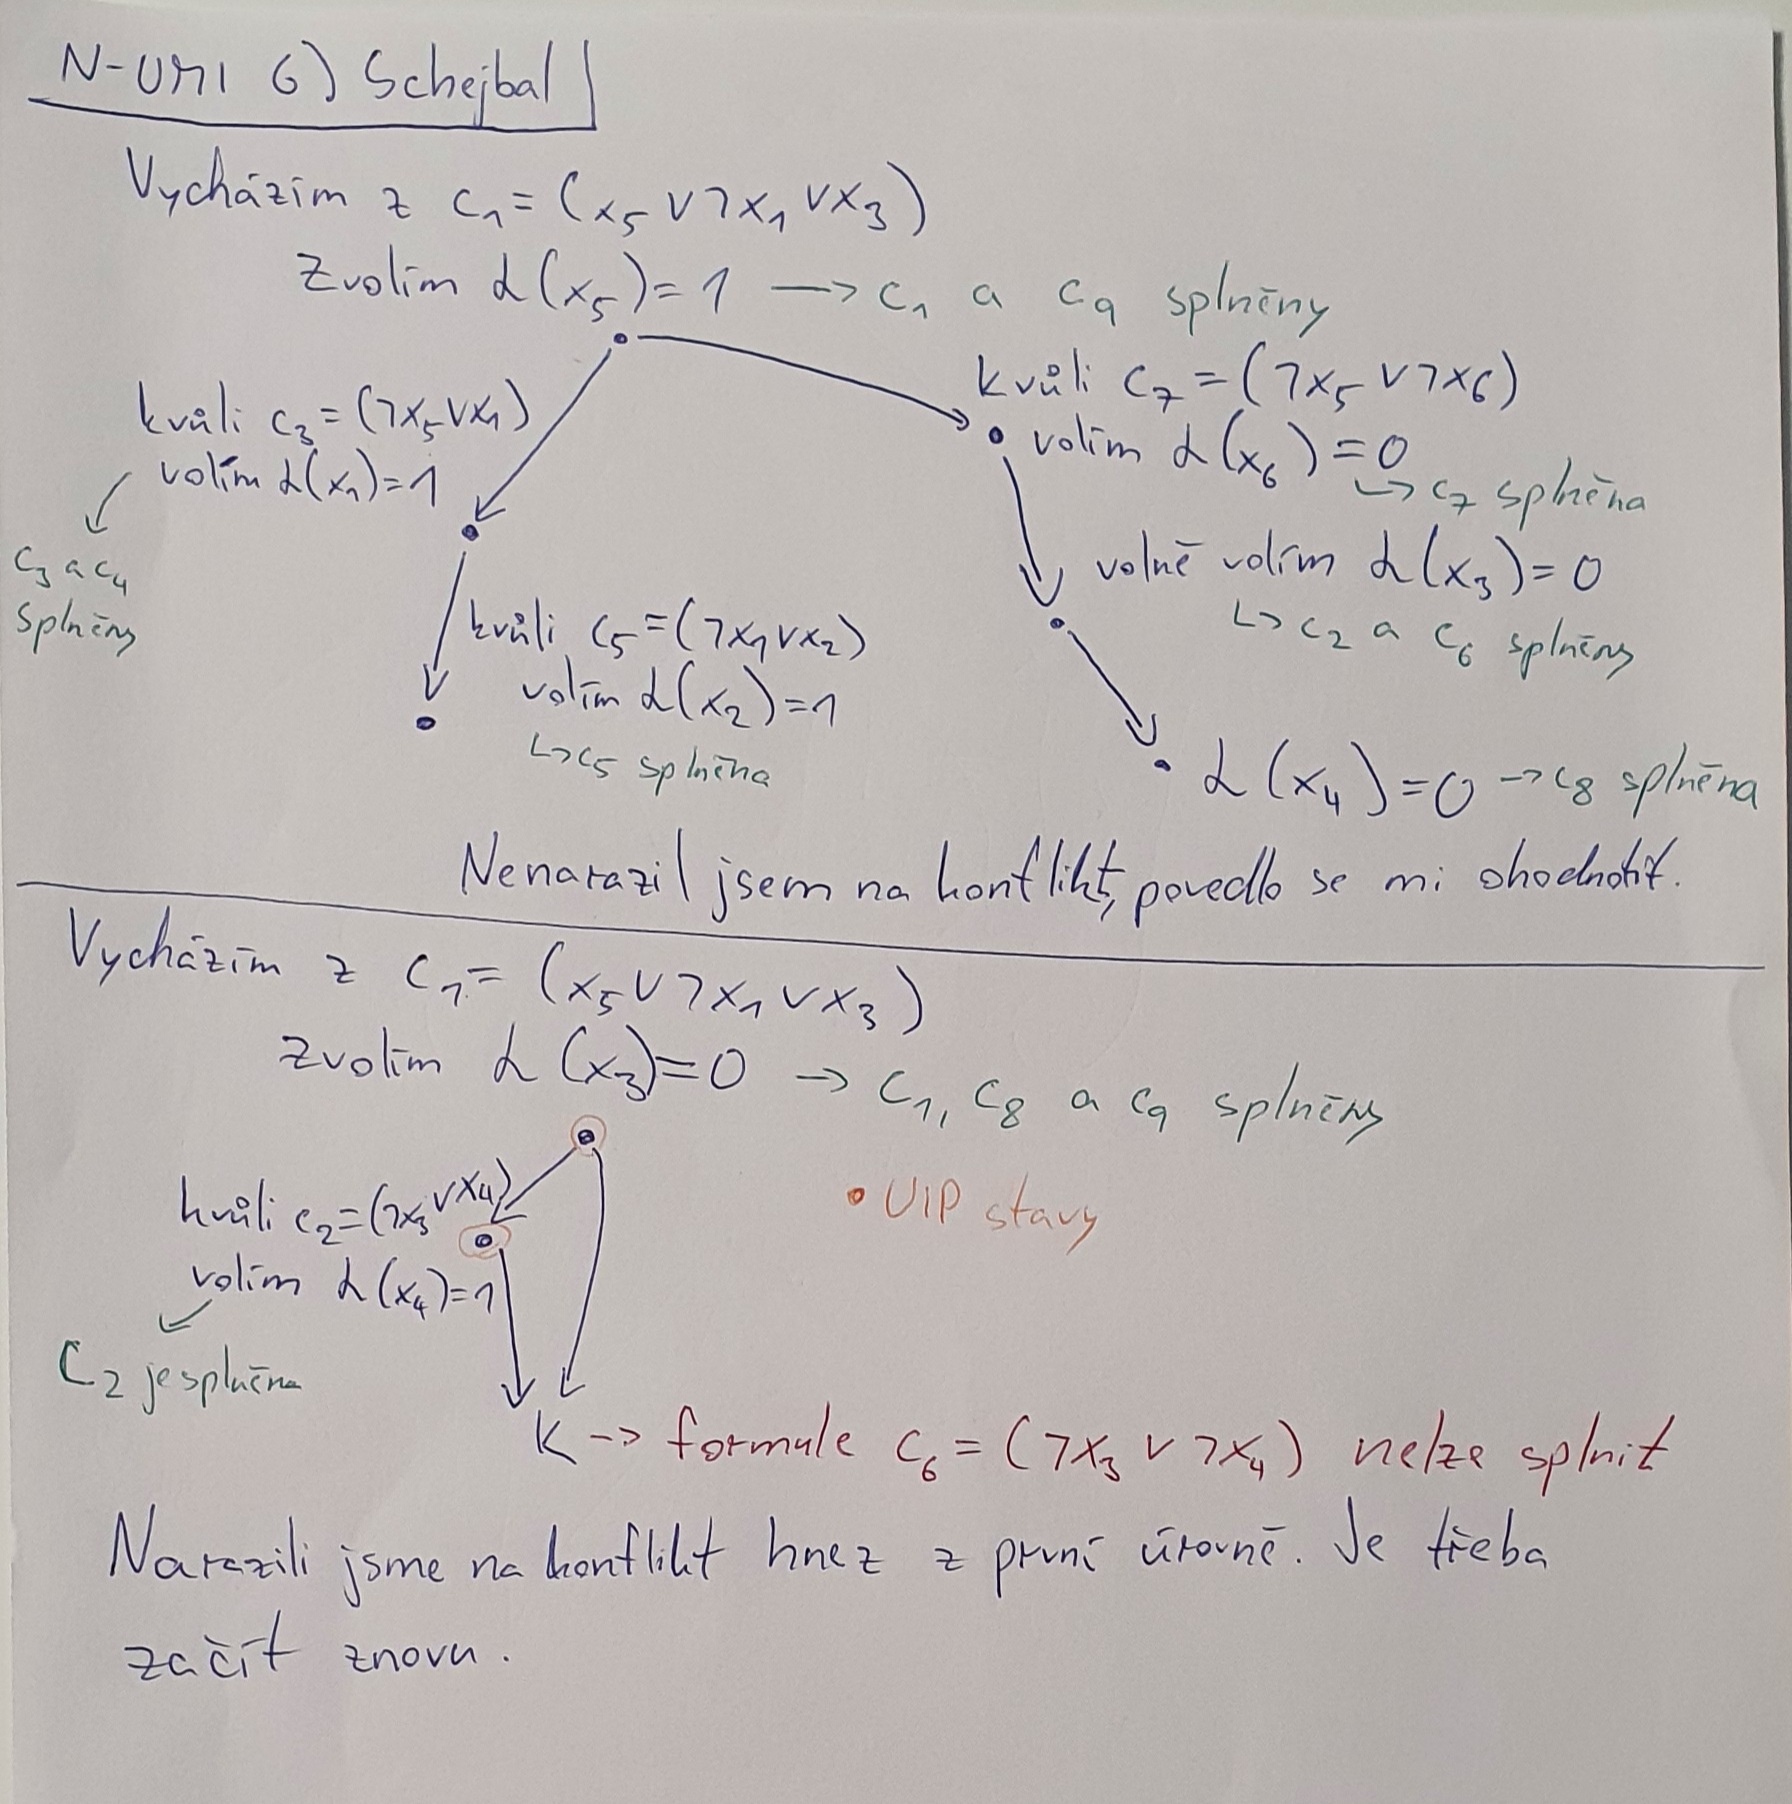 N-UMI 6) Schejbal
Vycházím z c₁ = (x₅ ∨ ¬x₁ ∨ x₃)
Zvolím α(x₅) = 1 → c₁ a c₉ splněny
kvůli c₃ = (¬x₅ ∨ x₁)
volím α(x₁) = 1
c₃ a c₄
splněny
kvůli c₅ = (¬x₁ ∨ x₂)
volím α(x₂) = 1
↳ c₅ splněna
kvůli c₇ = (¬x₅ ∨ ¬x₆)
volím α(x₆) = 0
↳ c₇ splněna
volně volím α(x₃) = 0
↳ c₂ a c₆ splněny
α(x₄) = 0 → c₈ splněna
Nenarazil jsem na konflikt, povedlo se mi ohodnotit.
Vycházím z c₁ = (x₅ ∨ ¬x₁ ∨ x₃)
Zvolím α(x₃) = 0 → c₁, c₈ a c₉ splněny
kvůli c₂ = (¬x₃ ∨ x₄)
volím α(x₄) = 1
C₂ je splněna
• UIP stavy
K → formule c₆ = (¬x₃ ∨ ¬x₄) nelze splnit
Narazili jsme na konflikt hnez z první úrovně. Je třeba
začít znovu.